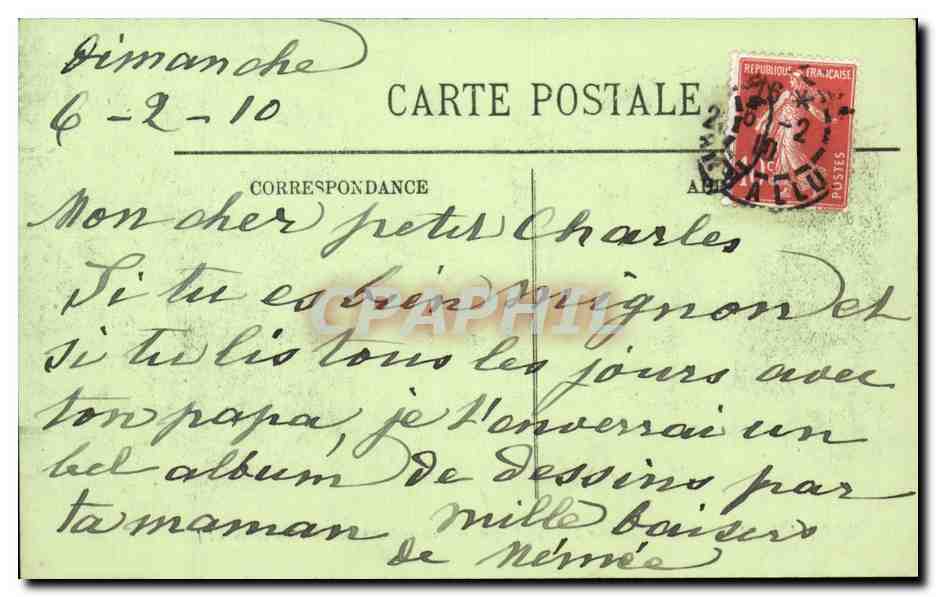 Dimanche
6-2-10
CARTE POSTALE
REPUBLIQUE FRANÇAISE
10c
POSTES
CORRESPONDANCE
Mon cher petit Charles
Si tu es bien mignon et
si tu lis tous les jours avec
ton papa, je t'enverrai un
bel album de dessins par
ta maman mille baisers
de Mémée
CPAPHIL